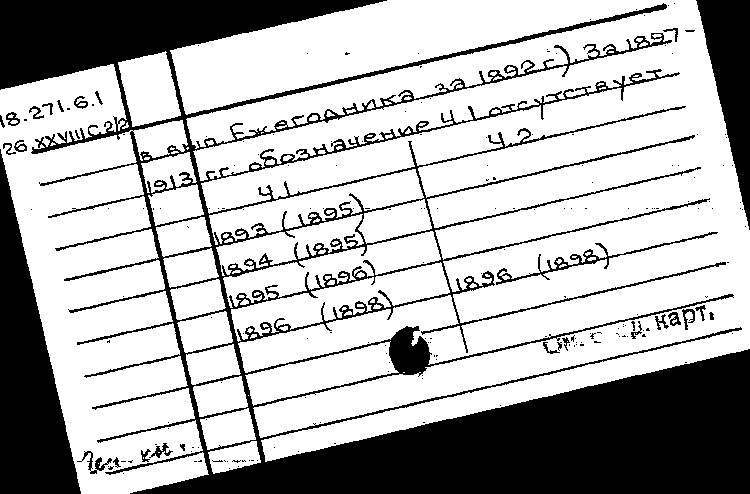 18.271.6.1
26 XXVIII С 2/2
в вып Ежегодника за 1892 г.). За 1897-
1913 гг. обозначение ч.1 отсутствует.
ч.1. ч.2.
1893 (1895)
1894 (1895)
1895 (1896)
1896 (1898) 1896 (1898)
См. след. карт.
кн.